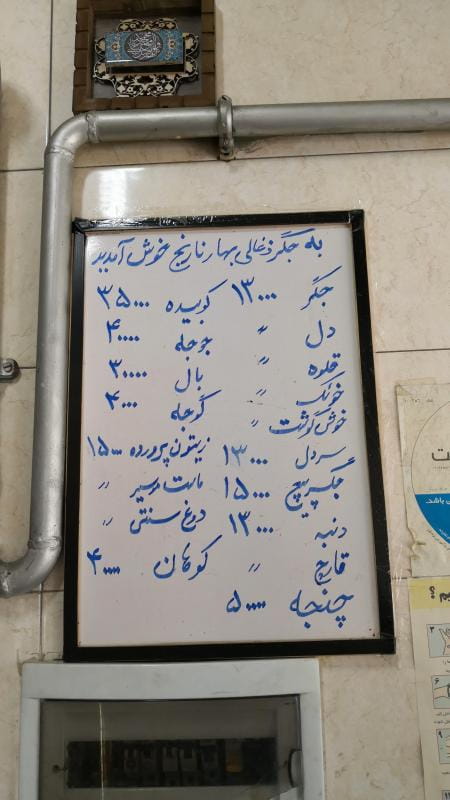 به جگر ذغالی بهار نارنج خوش آمدید
جگر ۱۳۰۰۰
دل 〃
قلوه 〃
خوئک 〃
خوش گوشت 〃
سردل ۱۳۰۰۰
جگر پیچ ۱۵۰۰۰
دنبه ۱۳۰۰۰
قارچ 〃
چنجه ۵۰۰۰۰
کوبیده ۳۵۰۰۰
جوجه ۴۰۰۰۰
بال ۳۰۰۰۰
گوجه ۴۰۰۰
زیتون پرورده ۱۵۰۰۰
ماست موسیر 〃
دوغ سنتی 〃
کوهان ۴۰۰۰۰